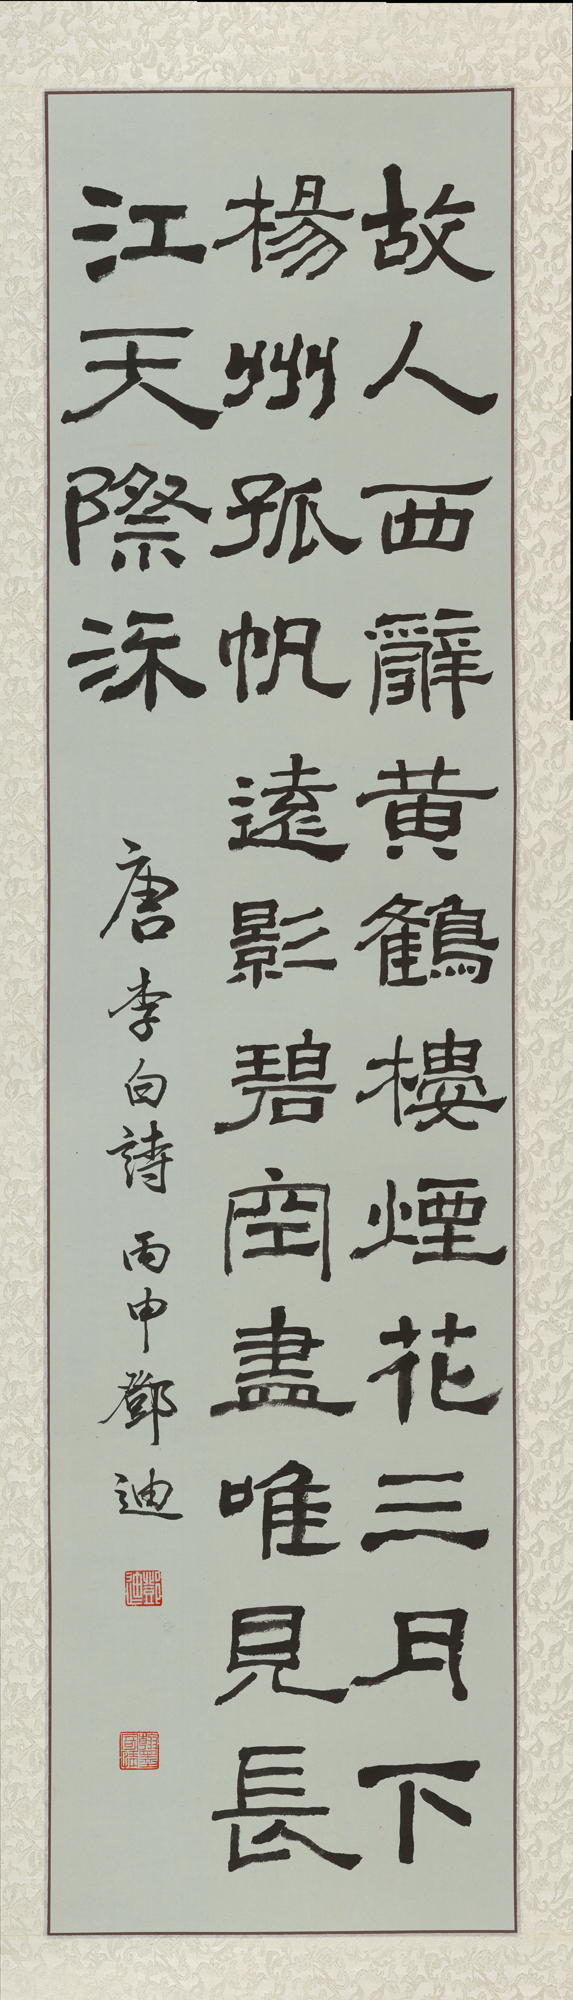 故人西辭黄鶴樓煙花三月下
楊州孤帆遠影碧空盡唯見長
江天際流
唐李白詩 丙申鄧迪
鄧迪